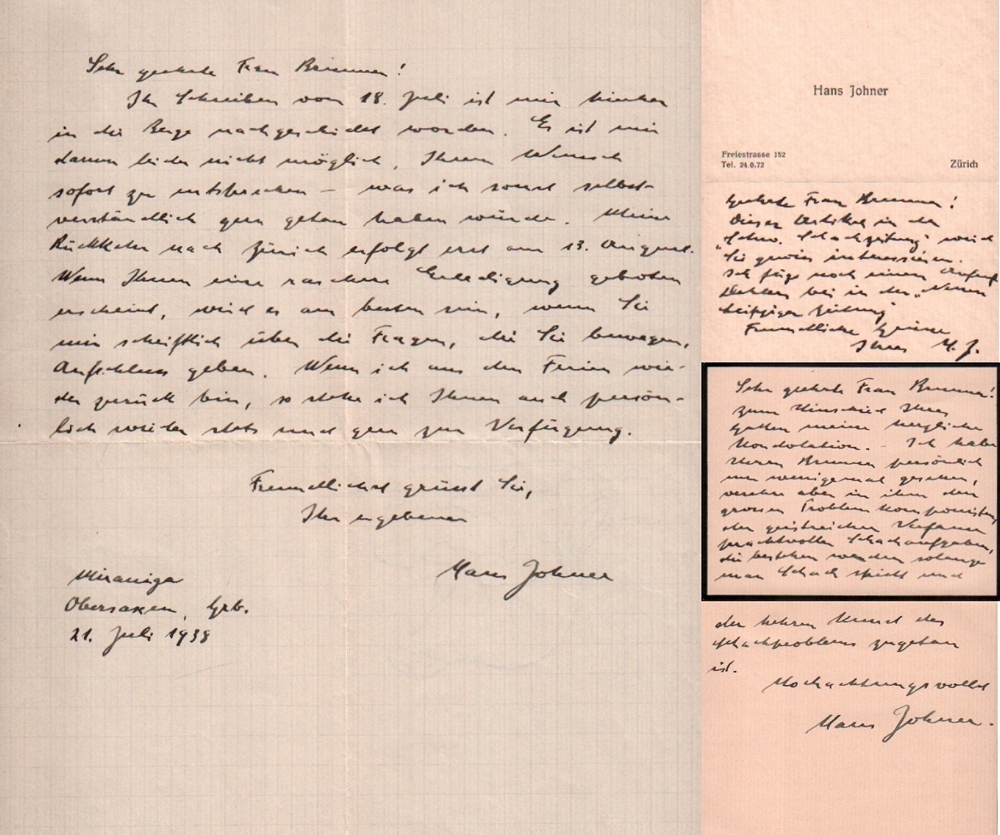 Sehr geehrte Frau Brunner!
Ihr Schreiben vom 18. Juli ist mir hinter
in die Berge nachgeschickt worden. Es ist mir
darum leider nicht möglich, Ihrem Wunsch
sofort zu entsprechen – was ich sonst selbst-
verständlich gern getan haben würde. Meine
Rückkehr nach Zürich erfolgt erst am 13. August.
Wenn Ihnen eine raschere Erledigung geboten
erscheint, wird es am besten sein, wenn Sie
mir schriftlich über die Fragen, die Sie bewegen,
Aufschluss geben. Wenn ich aus den Ferien wie-
der zurück bin, so stehe ich Ihnen auch persön-
lich wieder stets und gern zur Verfügung.
Freundlichst grüsst Sie,
Ihr ergebener
Hans Johner
Miraniga
Obersaxen, Grb.
21. Juli 1938
Hans Johner
Freiestrasse 152
Tel. 24.0.72
Zürich
Geehrte Frau Brunner!
Dieser Artikel in der
"Schw. Schachzeitung" wird
Sie gewiss interessieren.
Ich füge noch einen
bei in der "Neuen
Leipziger Zeitung"
Freundliche Grüsse
Ihres H. J.
Sehr geehrte Frau Brunner!
Zum Hinschied Ihres
Gatten meine herzliche
Kondolation. – Ich habe
Herrn Brunner persönlich
nur wenigemal gesehen,
verehre aber in ihm den
grossen Problemkomponisten,
den geistreichen Verfasser
prachtvoller Schachaufgaben,
die bestehen werden solange
man Schach spielt und
der hehren Kunst des
Schachproblems zugetan
ist.
Hochachtungsvollst
Hans Johner.